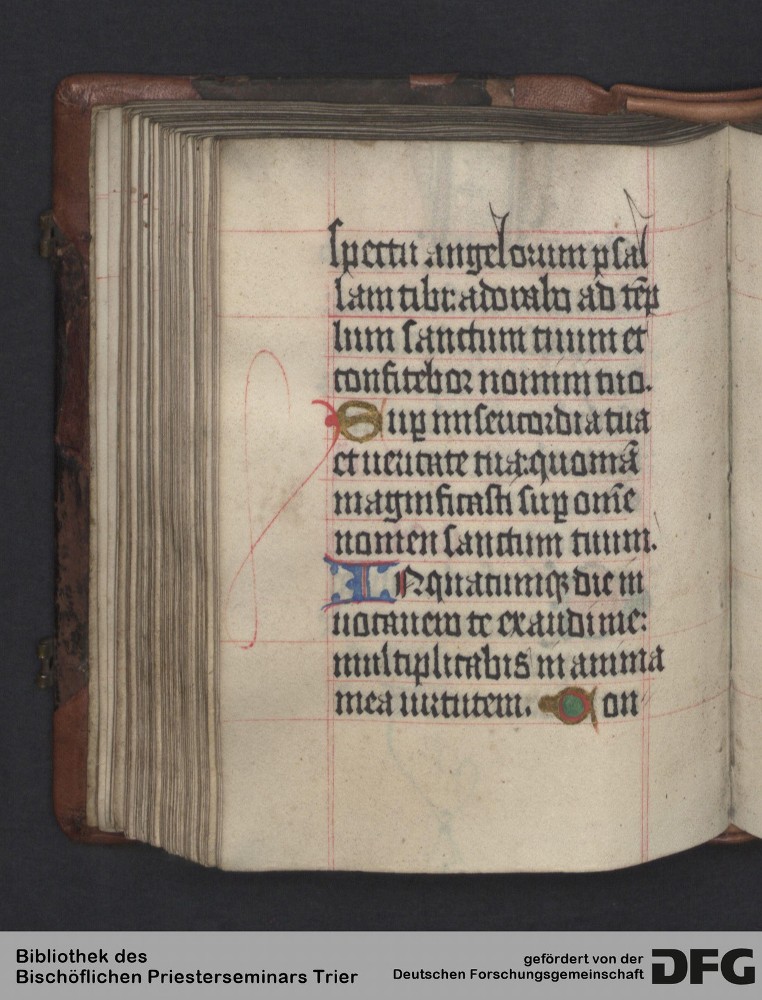 spectu angelorum psal
lam tibi: adorabo ad te̅p
lum sanctum tuum et
confitebor nomini tuo.
Suꝑ misericordia tua
et ueritate tua: quonia̅
magnificasti suꝑ om̅e
nomen sanctum tuum.
IN quacumqꝫ die in
uocauero te exaudi me:
multiplicabis in anima
mea uirtutem. Con
Bibliothek des
Bischöflichen Priesterseminars Trier
gefördert von der
Deutschen Forschungsgemeinschaft
DFG